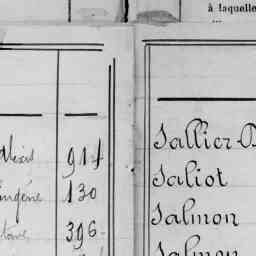 à laquelle
Alexis 914
Eugène 130
396
Sallier-D
Saliot
Salmon
Salmon